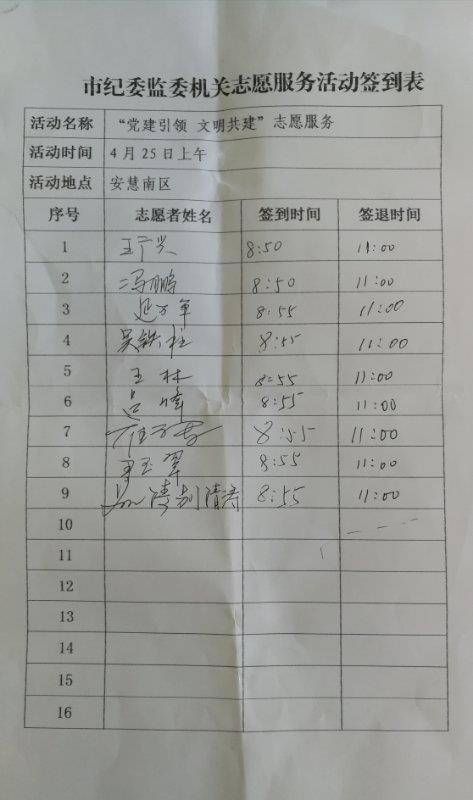 市纪委监委机关志愿服务活动签到表
活动名称 “党建引领 文明共建”志愿服务
活动时间 4月25日上午
活动地点 安慧南区
序号 志愿者姓名 签到时间 签退时间
1 王广兴 8:50 11:00
2 冯鹏 8:50 11:00
3 8:55 11:00
4 吴铁柱 8:55 11:00
5 王林 8:55 11:00
6 吕峰 8:55 11:00
7 8:55 11:00
8 玉翠 8:55 11:00
9 8:55 11:00
10
11
12
13
14
15
16